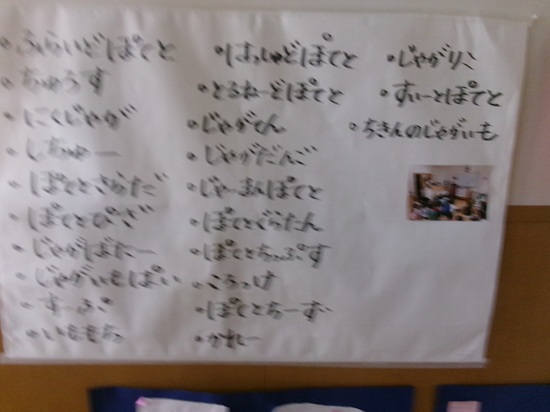 ・ふらいどぽてと
・おゅうす
・にくじゃが
・しちゅー
・ぽてとさらだ
・ぽてとぴざ
・じゃがばたー
・じゃがいもぱい
・すーぷ
・いももち
・はっしゅどぽてと
・とるねーどぽてと
・じゃがてん
・じゃがだんご
・じゃーまんぽてと
・ぽてとぐらたん
・ぽてとちっぷす
・ころっけ
・ぽてとちーず
・かれー
・じゃがりこ
・すいーとぽてと
・ちきんのじゃがいも